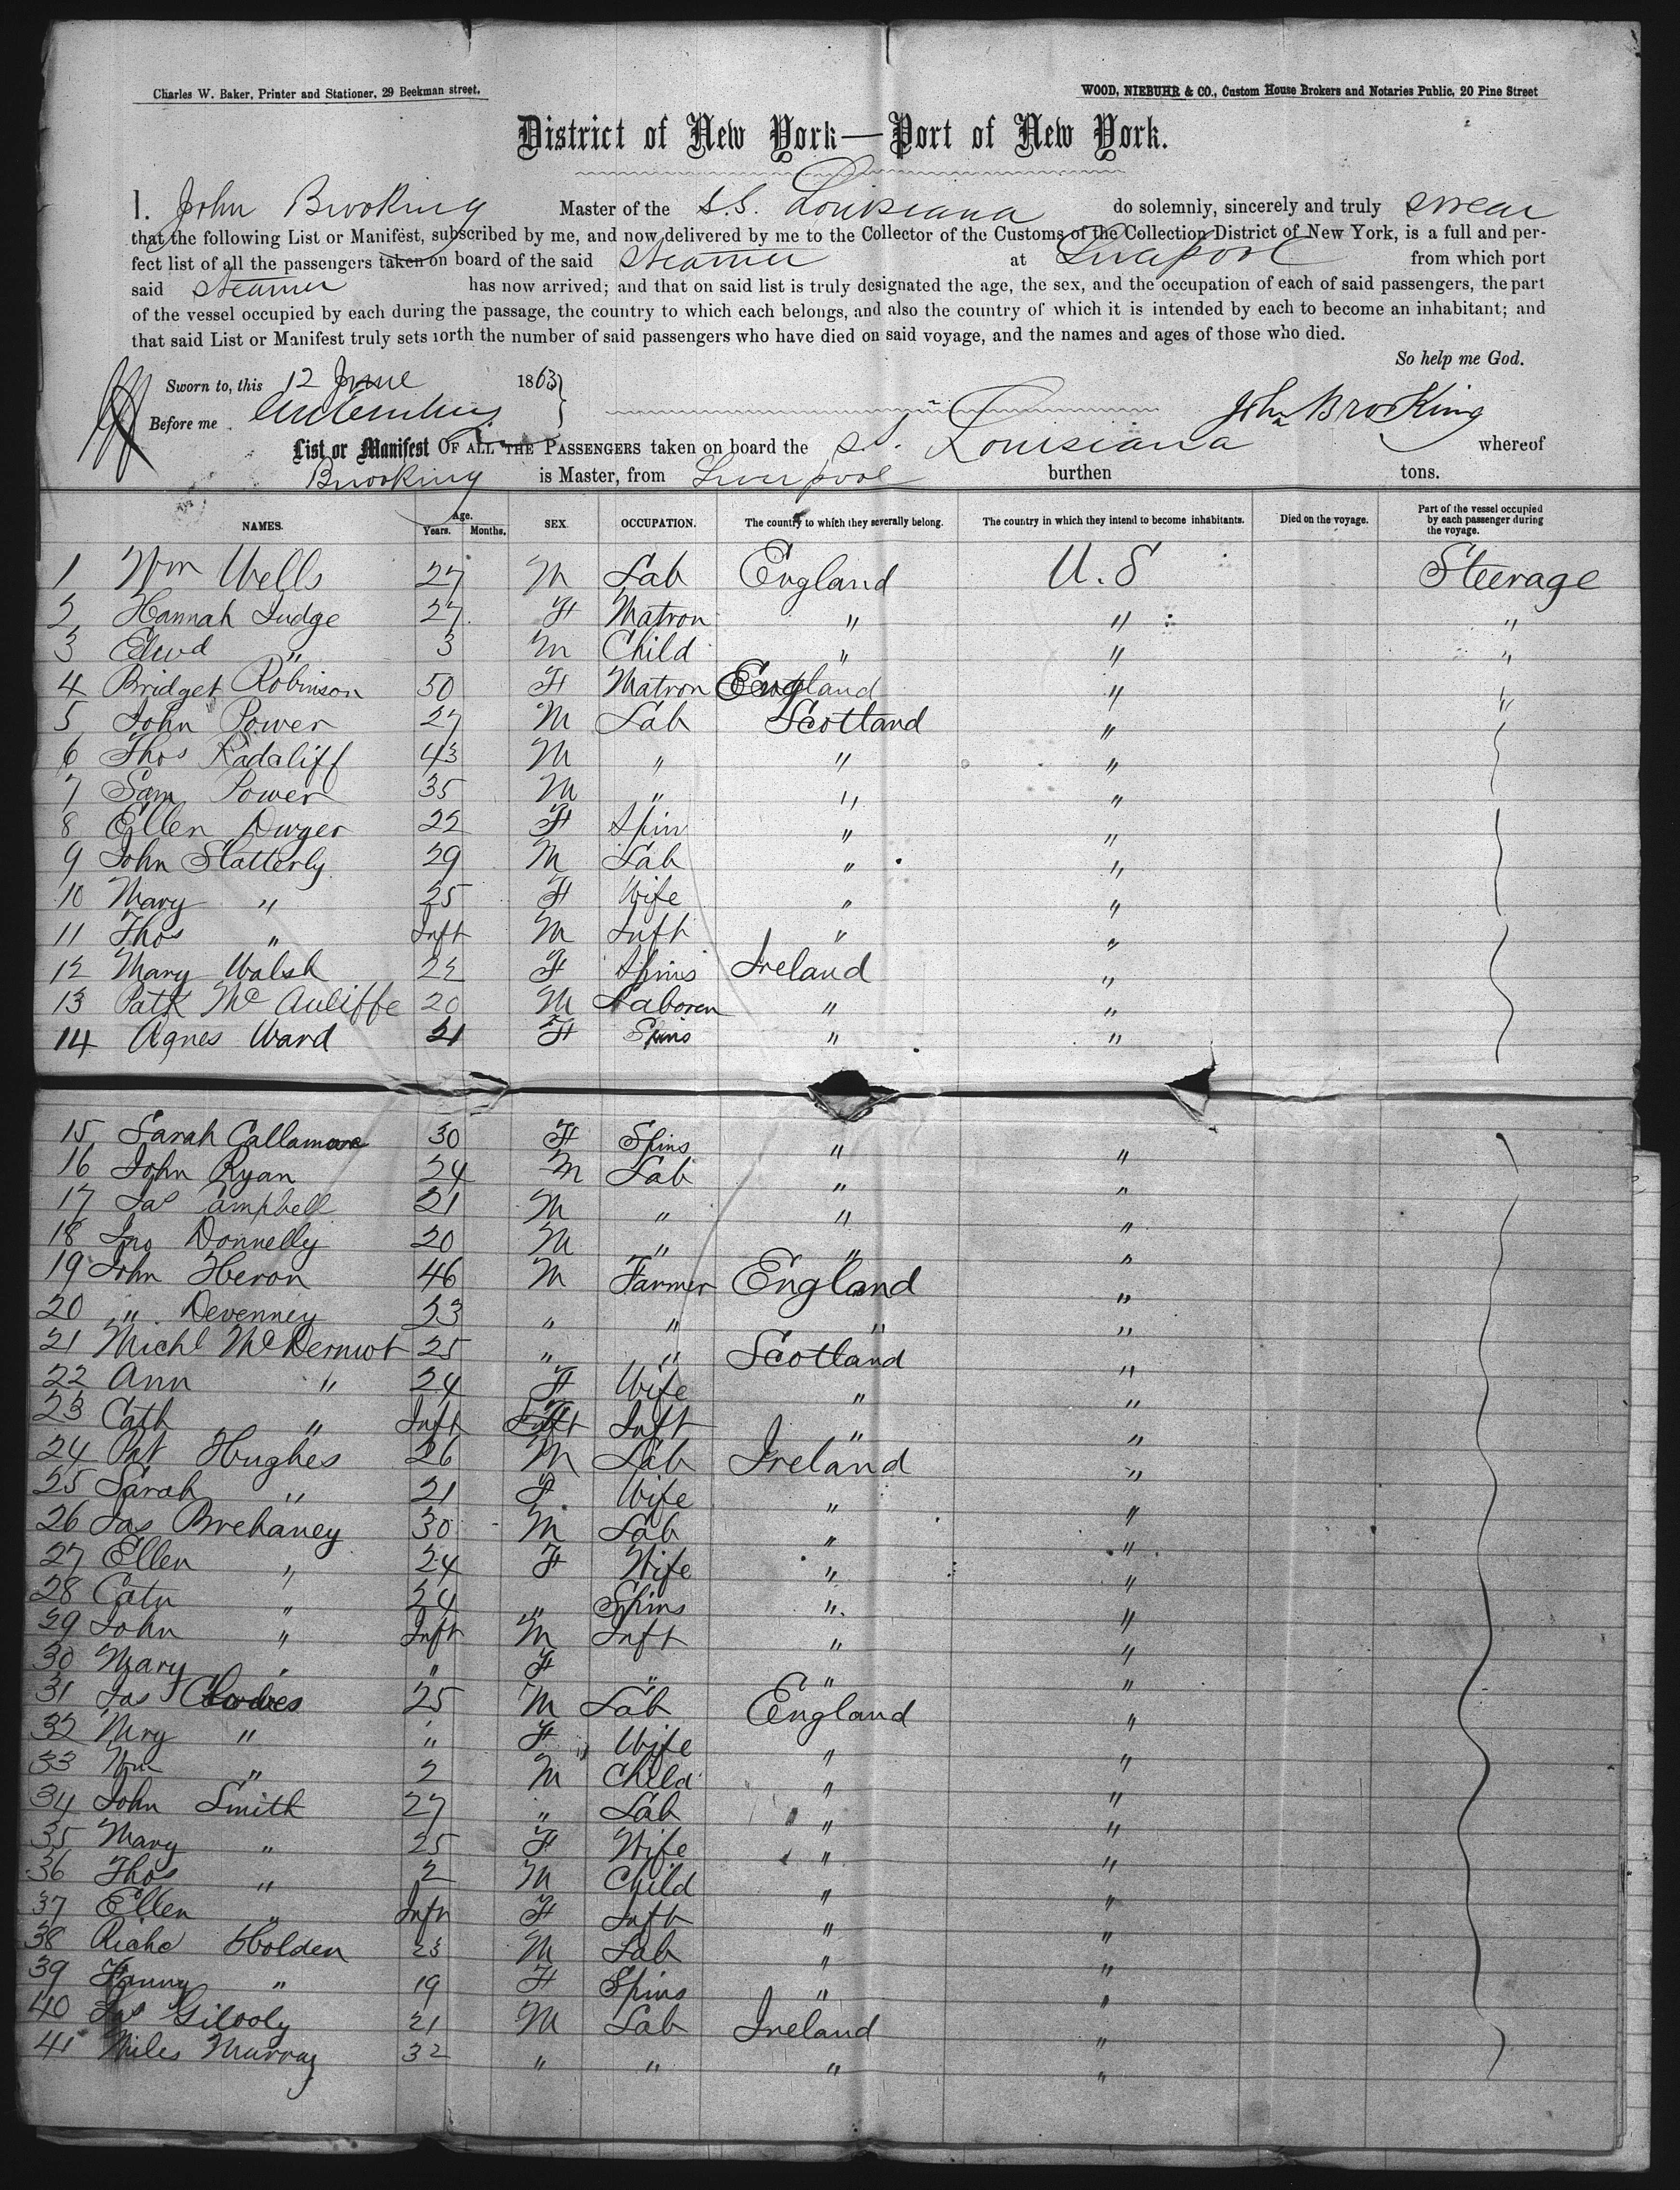 Charles W. Baker, Printer and Stationer, 29 Beekman street.
WOOD, NIEBUHR & CO., Custom House Brokers and Notaries Public, 20 Pine Street
District of New York—Port of New York.
I. John Brooking Master of the S.S. Louisiana do solemnly, sincerely and truly swear
that the following List or Manifest, subscribed by me, and now delivered by me to the Collector of the Customs of the Collection District of New York, is a full and per-
fect list of all the passengers taken on board of the said Steamer at Liverpool from which port
said Steamer has now arrived; and that on said list is truly designated the age, the sex, and the occupation of each of said passengers, the part
of the vessel occupied by each during the passage, the country to which each belongs, and also the country of which it is intended by each to become an inhabitant; and
that said List or Manifest truly sets forth the number of said passengers who have died on said voyage, and the names and ages of those who died.
So help me God.
Sworn to, this 12 June 1863
Before me John Brooking
List or Manifest OF ALL THE PASSENGERS taken on board the S.S. Louisiana whereof
Brooking is Master, from Liverpool burthen tons.
NAMES. Age. Years. Months. SEX. OCCUPATION. The country to which they severally belong. The country in which they intend to become inhabitants. Died on the voyage. Part of the vessel occupied by each passenger during the voyage.
1 Wm Wells 27 M Lab England U.S Steerage
2 Hannah Judge 27 F Matron " " "
3 Edwd " 3 M Child " " "
4 Bridget Robinson 50 F Matron England " "
5 John Power 27 M Lab Scotland "
6 Thos Radcliff 43 M " " "
7 Sam Power 35 M " " "
8 Ellen Dwyer 22 F Spin " "
9 John Slatterly 29 M Lab " "
10 Mary " 25 F Wife " "
11 Thos " Inft M Inft " "
12 Mary Walsh 22 F Spins Ireland "
13 Patk McAuliffe 20 M Laborer " "
14 Agnes Ward 21 F Spins " "
15 Sarah Callamore 30 F Spins " "
16 John Ryan 24 M Lab " "
17 Jas Campbell 21 M " " "
18 Jno Donnelly 20 M " " "
19 John Heron 46 M Farmer England "
20 " Devenney 23 " " " "
21 Michl McDermot 25 " " Scotland "
22 Ann " 24 F Wife " "
23 Cath " Inft F Inft " "
24 Pat Hughes 26 M Lab Ireland "
25 Sarah " 21 F Wife " "
26 Jas Brehaney 30 M Lab " "
27 Ellen " 24 F Wife " "
28 Cath " 24 " Spins " "
29 John " Inft M Inft " "
30 Mary " " F " " "
31 Jas 25 M Lab England "
32 Mry " " F Wife " "
33 Wm " 2 M Child " "
34 John Smith 27 " Lab " "
35 Mary " 25 F Wife " "
36 Thos " 2 M Child " "
37 Ellen " Inft F Inft " "
38 Richd Holden 23 M Lab " "
39 Fanny " 19 F Spins " "
40 Jas Gilooly 21 M Lab Ireland "
41 Miles Murray 32 " " " "